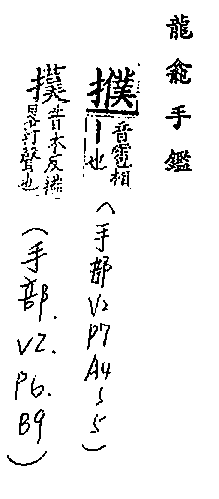 龍龕手鑑
㩧音雹相丨也
(手部V2 P7 A4,5)
撲普木反打聲也
(手部. V2. P6. B9)